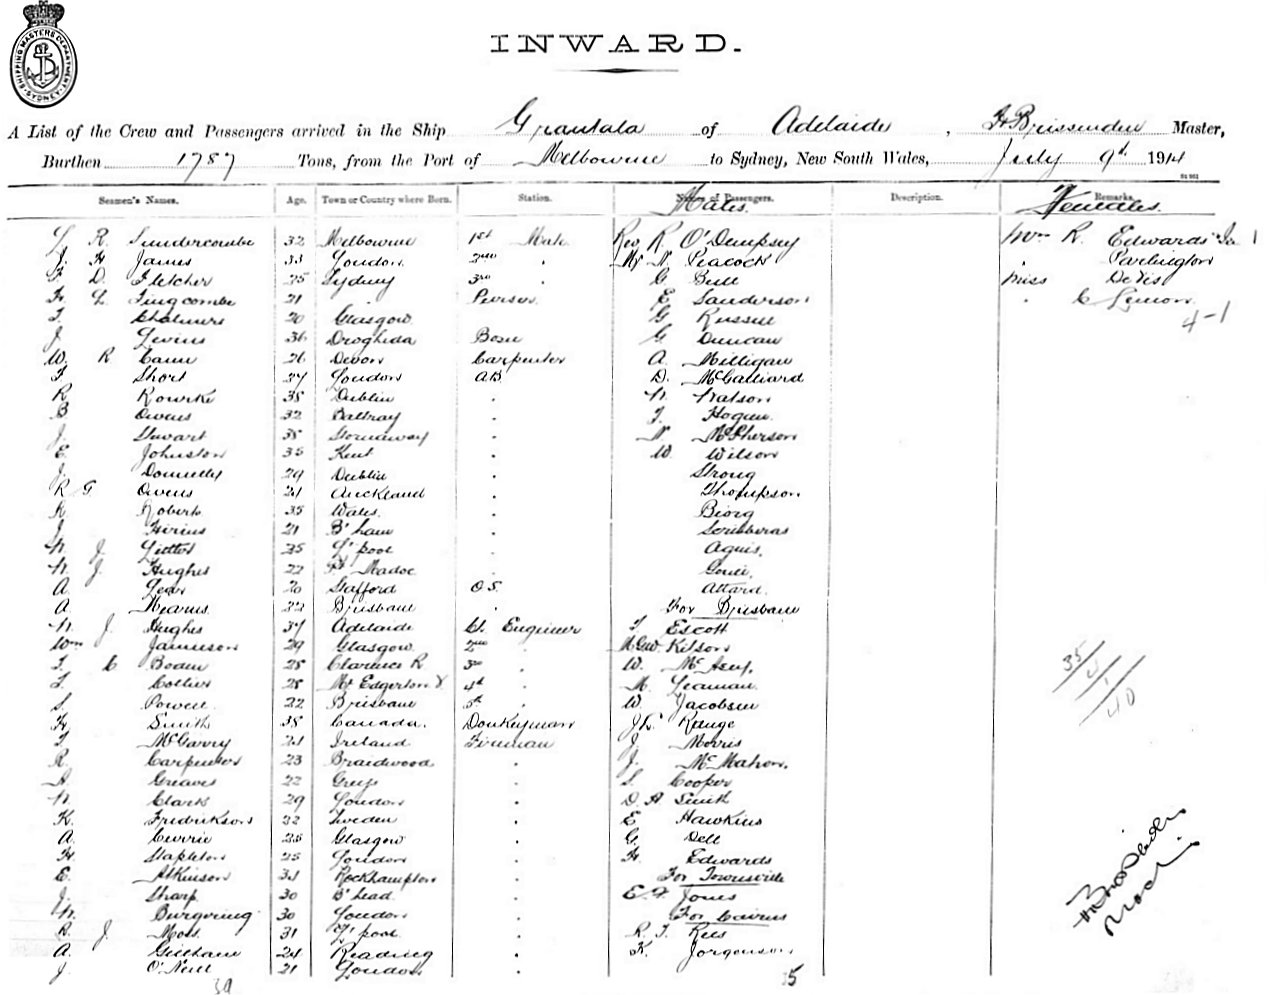 SHIPPING MASTERS DEPARTMENT SYDNEY
INWARD.
A List of the Crew and Passengers arrived in the Ship Grantala of Adelaide, H Brissenden Master,
Burthen 1787 Tons, from the Port of Melbourne to Sydney, New South Wales, July 9th 1914
Seamen's Names. Age. Town or Country where Born. Station. Names of Passengers. Description. Remarks.
Males. Females.
R. Sundercombe 32 Melbourne 1st Mate Rev R. O'Dempsey Mrs R. Edwards 1
J. H James 33 London 2nd " Mr N. Peacock " Partington
F. D. Fletcher 25 Sydney 3rd " G Bell Miss DeVis
H. L. Lingcombe 21 " Purser. E. Sanderson " C Lemon
T. Chalmers 20 Glasgow G Russell 4-1
J. Levins 36 Drogheda Bosn G Duncan
W. R Cann 26 Devon Carpenter A. Milligan
F Short 37 London A.B. D. McGalliard
R Rourke 38 Dublin " Watson
B Owens 32 Baltray " T. Hogan
J. Stewart 38 Stornaway " N. McPherson
E. Johnston 35 Kent " W. Wilson
J. Donnelly 29 Dublin " Strong
R G Owens 21 Auckland " Thompson
R Roberts 35 Wales. "
J. 21 B'ham "
W. J. 35 L'pool " Aquis.
W. J. Hughes 22 Pt Madoc "
A. Lear 20 Stafford O.S. Attard.
A. Mearns 22 Brisbane " For Brisbane
W. J. Hughes 37 Adelaide Ch. Engineer T Escott
Wm Jamieson 29 Glasgow 2nd " Kitson
T. C Boden 28 Clarence R 3rd " W.
T. Collier 28 Mt Edgerton V. 4th " M. Leaman
S. Powell 22 Brisbane 5th " W. Jacobsen
H. Smith 38 Canada. Donkeyman Range
T. McGarry 21 Ireland Fireman J. Morris
R. Carpenter 23 Braidwood " J. McMahon.
A. Greaves 22 " S. Cooper
W. Clark 29 London " D. A Smith
K. Fredrikson 32 Sweden " E Hawkins
A. Currie 25 Glasgow " G. Dell
H. Stapleton 25 London " H. Edwards
E. Atkinson 31 Rockhampton " For Townsville
J. Sharp 30 B'head. " E. F Jones
W. 30 London " For Cairns
R. J. Moss. 31 L'pool. " R. T. Rees
A. Gillham 24 Reading " K. Jorgenson
J. O'Neill 21 London "
39 35
35
4
1
40